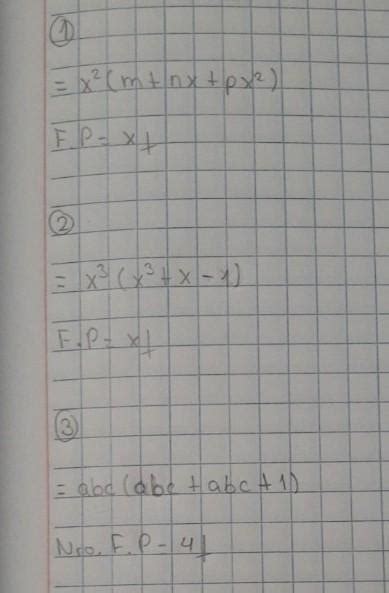 ①
= x²(m+nx+px²)
F.P = x
②
= x³(x³+x-1)
F.P = x
③
= abc(abc+abc+1)
Nro. F.P = 4